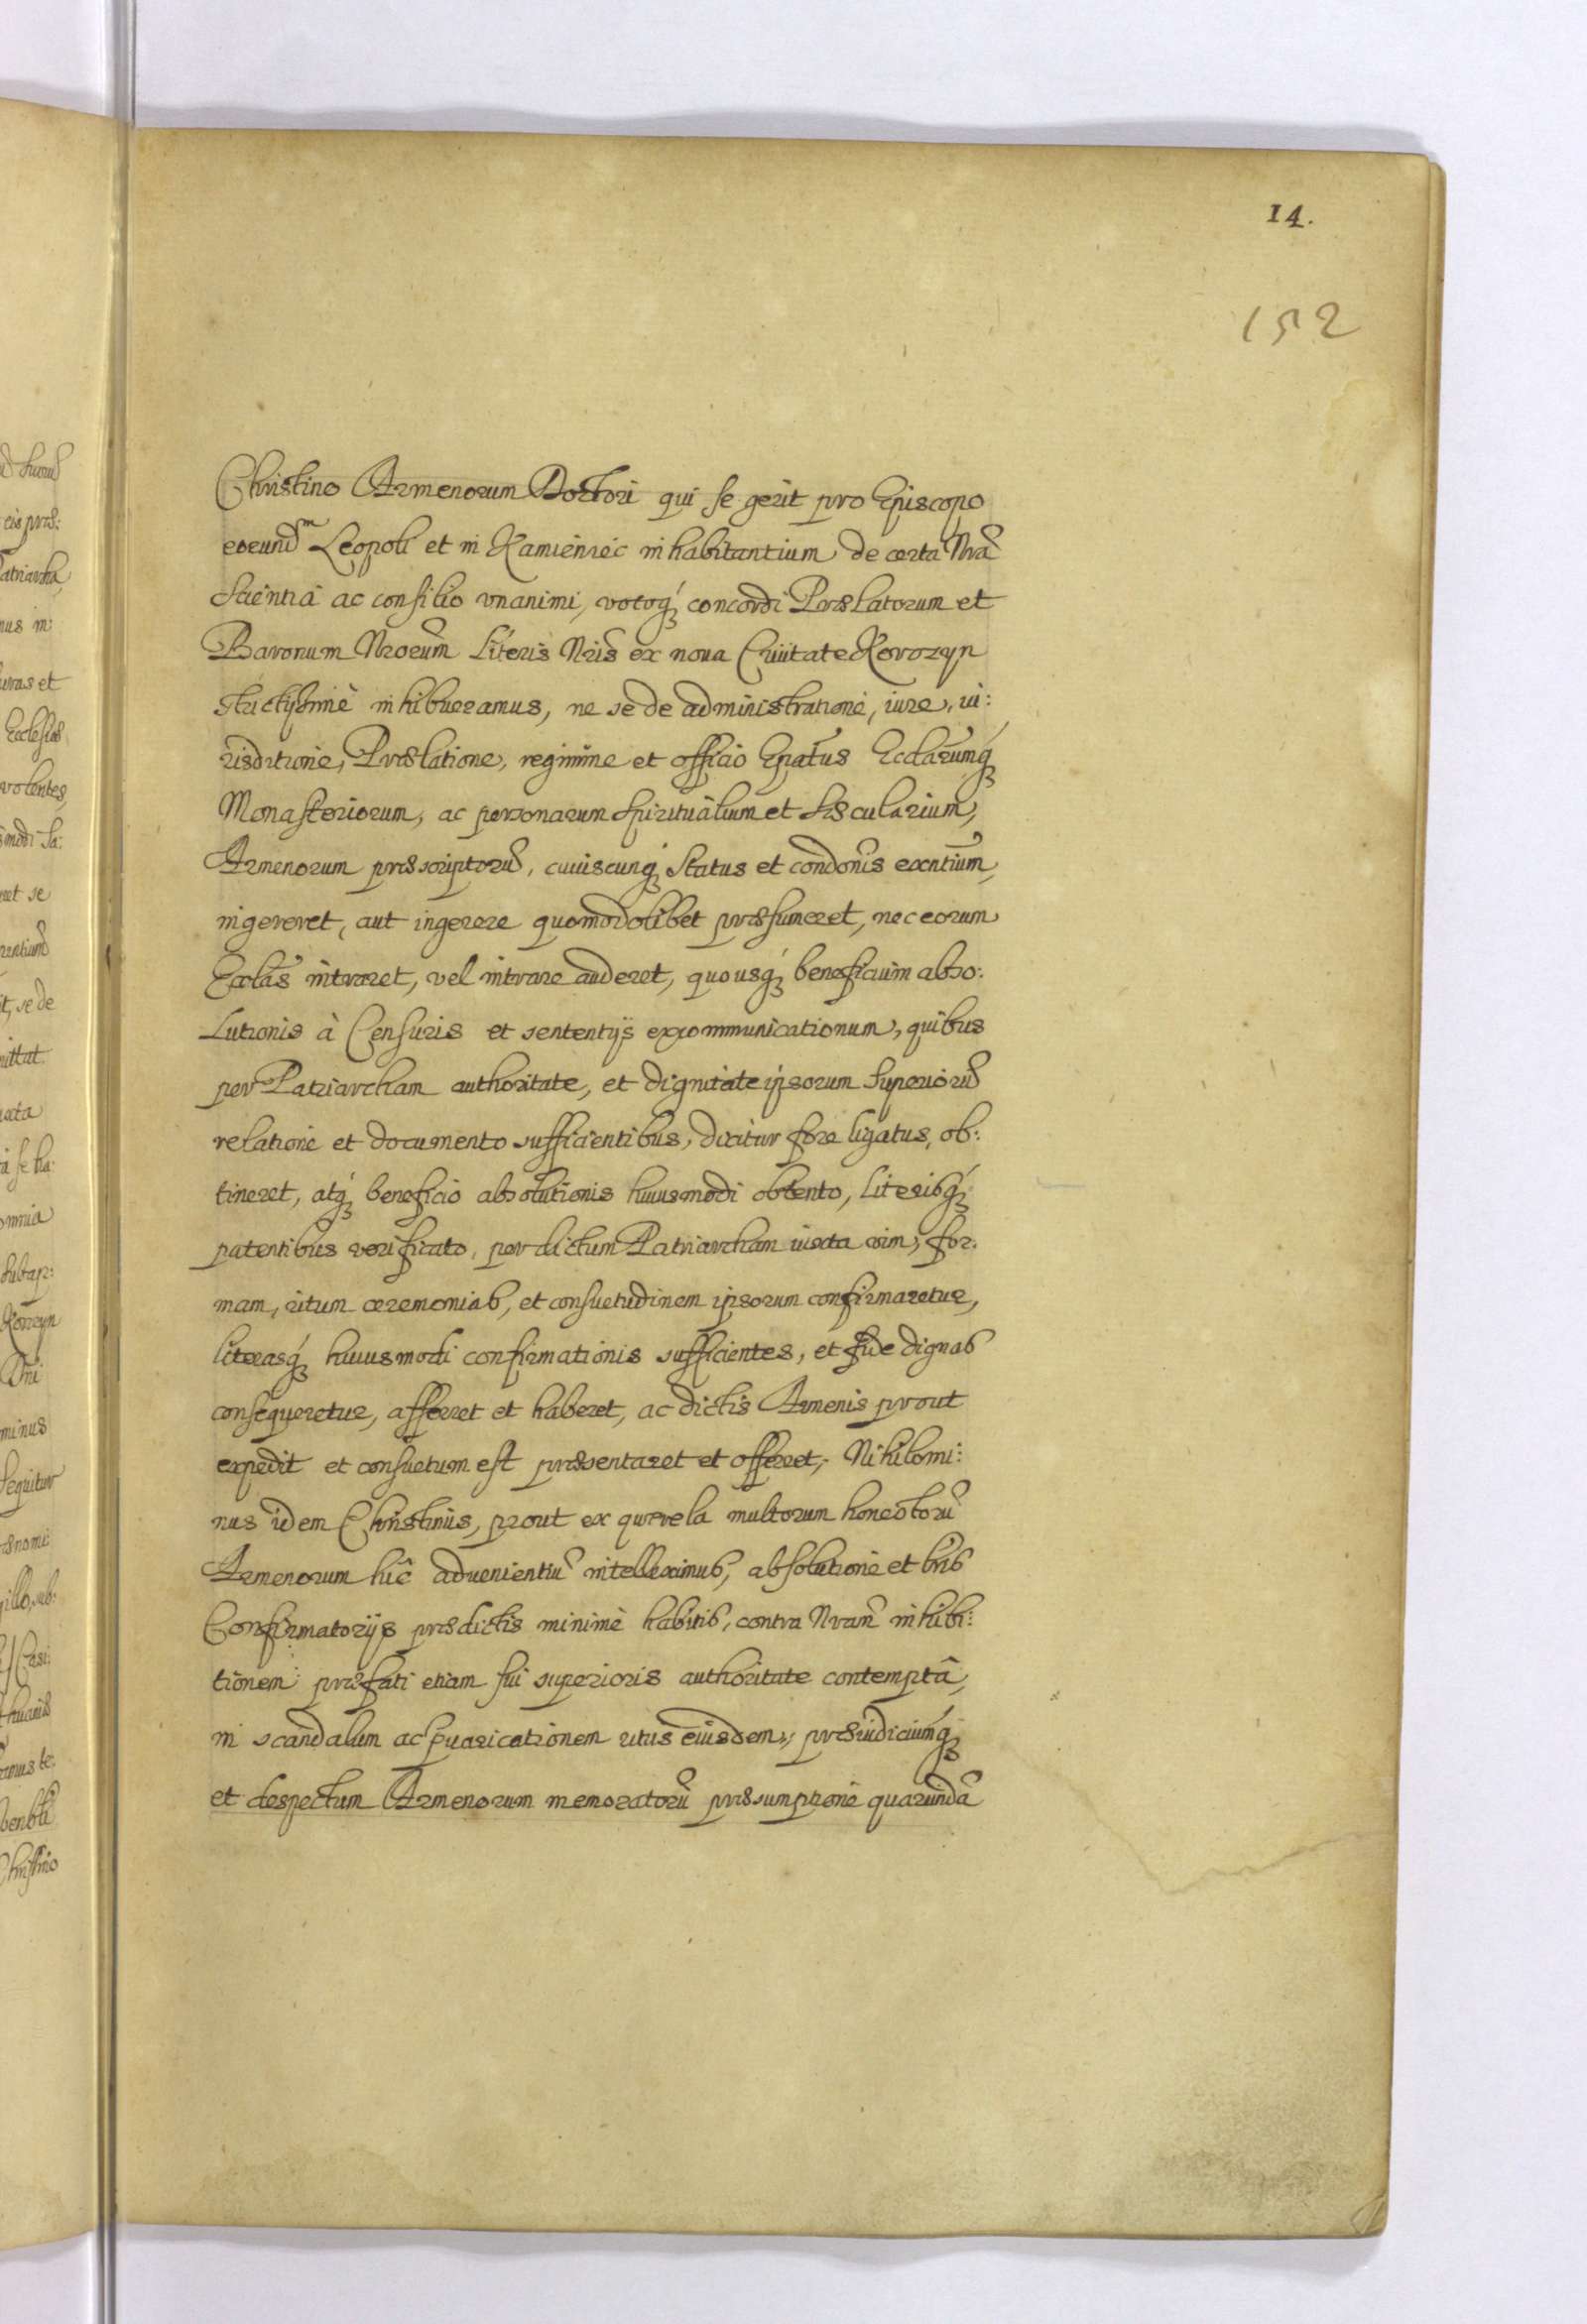 14.
152
Christino Armenorum Doctori qui se gerit pro Episcopo
eorund^m Leopoli et in Kamieniec inhabitantium de certa Nrã
Scientia ac consilio vnanimi, votoq́₃ concordi Prælatorum et
Baronum Nrorum̃ Literis Nris̃ ex noua Ciuitate Korozyn
strictissimè inhibueramus, ne se de administratione, iure, iu:
risditione, Prælatione, regimine et officio Epatũs Ecclarum̃q́₃
Monasteriorum, ac personarum Spiritualium et Sæcularium,
Armenorum præscriptorũ, cuiuscunq₃ Status et condonĩs exntium̃,
ingereret, aut ingerere quomodolibet præsumeret, nec eorum
Ecclas̃ intraret, vel intrare auderet, quousq́₃ beneficium abso:
lutionis à Censuris et sententijs excommunicationum, quibus
per Patriarcham authoritate, et dignitate ipsorum Superiorũ
relatione et documento sufficientibus, dicitur fore ligatus, ob:
tineret, atq́₃ beneficio absolutionis huiusmodi obtento, literisq́₃
patentibus verificato, per dictum Patriarcham iuxta vim, for:
mam, ritum ceremonias, et consuetudinem ipsorum confirmaretur,
literasq́₃ huiusmodi confirmationis sufficientes, et fide dignas
consequeretur, afferret et haberet, ac dictis Armenis prout
expedit et consuetum est præsentaret et offeret, Nihilomi:
nus idem Christinus, prout ex querela multorum honestorũ
Armenorum huc̃ aduenientiũ intelleximus, absolutione et lrĩs
Confirmatorijs prædictis minimè habitis, contra Nram̃ inhibi:
tionem præfati etiam sui superioris authoritate contemptâ,
in scandalum ac puaricationem ritus eiusdem, præiudiciumq́₃
et despectum Armenorum memoratorũ præsumptione quarundã